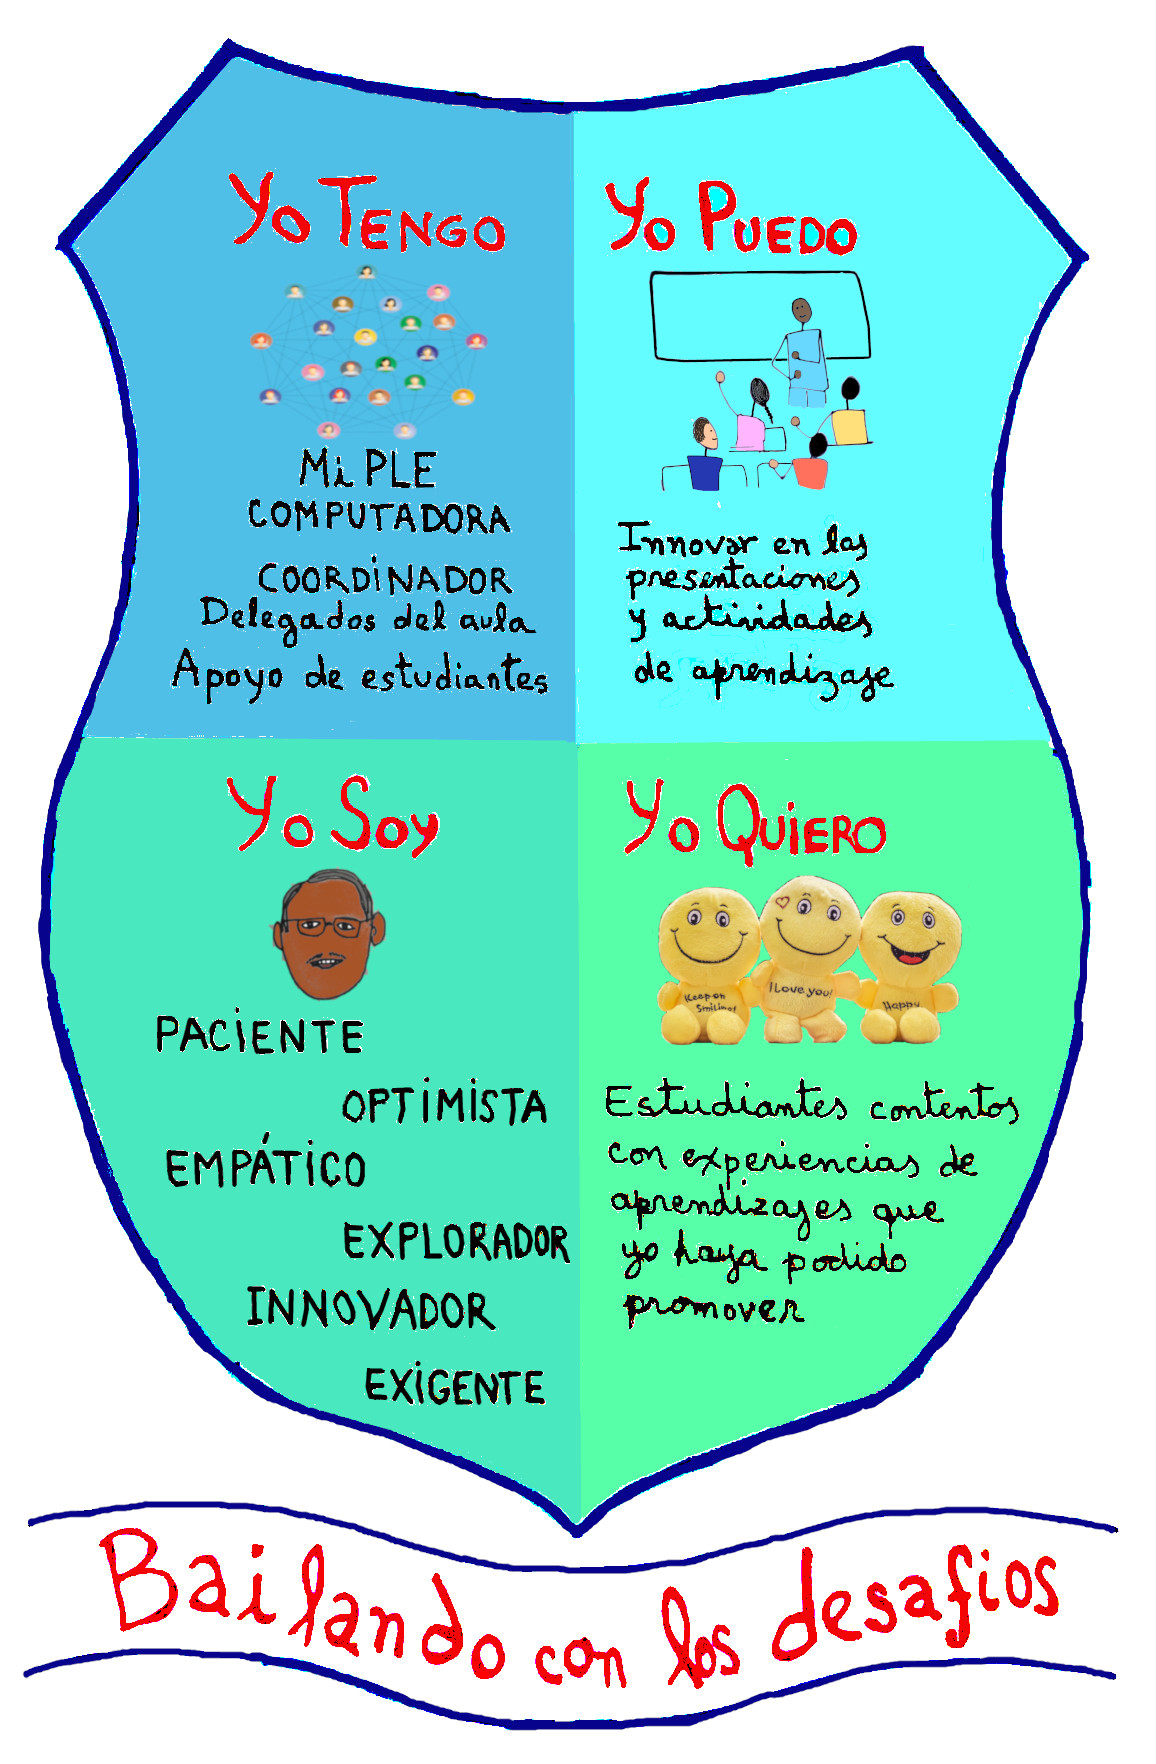 Yo TENGO
Mi PLE
COMPUTADORA
COORDINADOR
Delegados del aula
Apoyo de estudiantes
Yo PUEDO
Innovar en las
presentaciones
y actividades
de aprendizaje
Yo Soy
PACIENTE
OPTIMISTA
EMPÁTICO
EXPLORADOR
INNOVADOR
EXIGENTE
Yo QUIERO
Keep on
Smiling!
I Love you!
Happy
Estudiantes contentos
con experiencias de
aprendizajes que
yo haya podido
promover
Bailando con los desafios